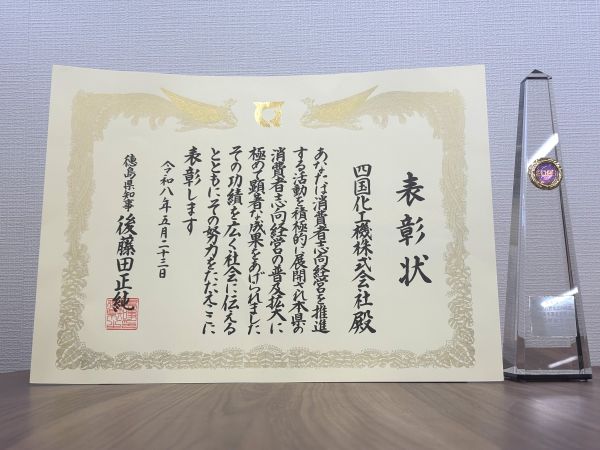 表彰状
四国化工機株式会社殿
あなたは消費者志向経営を推進
する活動を積極的に展開され本県の
消費者志向経営の普及拡大に
極めて顕著な成果をあげられました
その功績を広く社会に伝える
とともにその努力をたたえここに
表彰します
令和八年五月二十三日
徳島県知事 後藤田正純